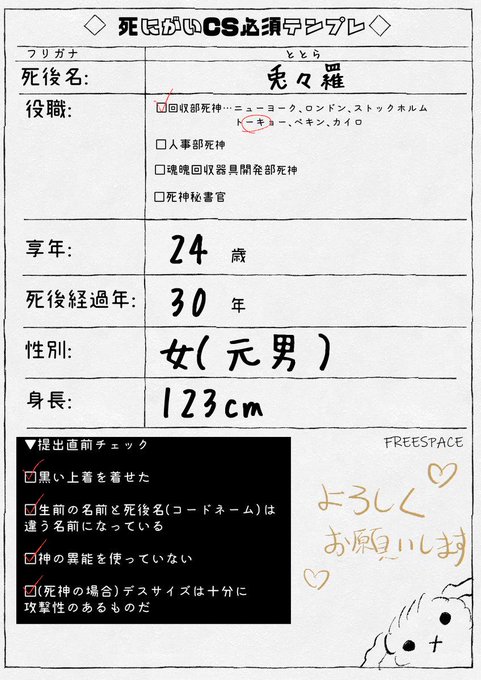 ◇ 死にがいCS必須テンプレ ◇
フリガナ ととら
死後名: 兎々羅
役職: ☑回収部死神…ニューヨーク、ロンドン、ストックホルム
トーキョー、ペキン、カイロ
□人事部死神
□魂魄回収器具開発部死神
□死神秘書官
享年: 24 歳
死後経過年: 30 年
性別: 女(元男)
身長: 123cm
▼提出直前チェック
☑黒い上着を着せた
☑生前の名前と死後名(コードネーム)は
違う名前になっている
☑神の異能を使っていない
☑(死神の場合)デスサイズは十分に
攻撃性のあるものだ
FREESPACE
よろしく
お願いします